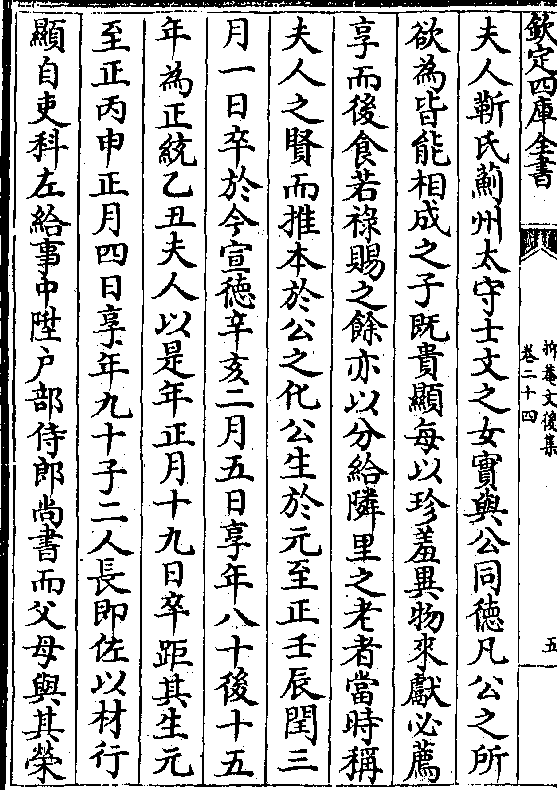 欽定四庫全書
抑菴文後集
卷二十四
五
夫人靳氏薊州太守士文之女實與公同德凡公之所
欲為皆能相成之子既貴顯每以珍羞異物來獻必薦
享而後食若祿賜之餘亦以分給隣里之老者當時稱
夫人之賢而推本於公之化公生於元至正壬辰閏三
月一日卒於今宣德辛亥二月五日享年八十後十五
年為正統乙丑夫人以是年正月十九日卒距其生元
至正丙申正月四日享年九十子二人長即佐以材行
顯自吏科左給事中陞户部侍郎尚書而父母與其榮